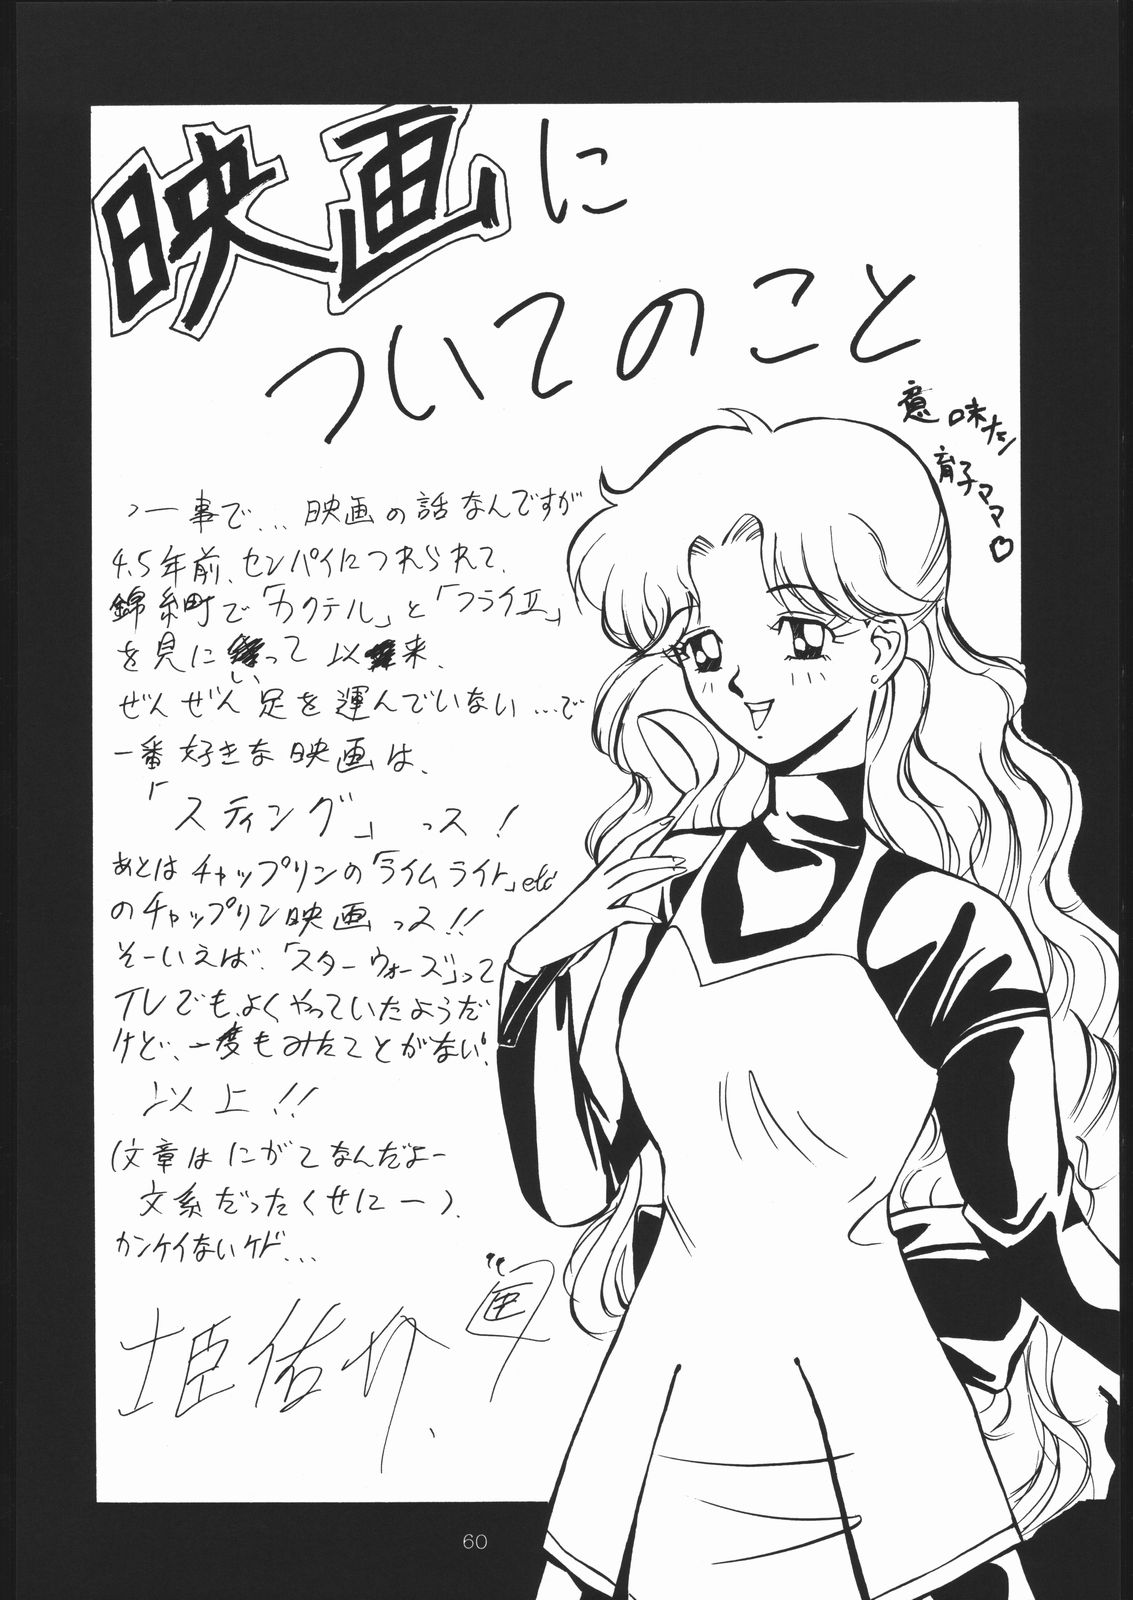 映画に
ついてのこと
意味なし
育子ママ♡
つー事で…映画の話なんですが
4.5年前、センパイにつれられて、
錦糸町で「カクテル」と「フライⅡ」
を見に いって以来、
ぜんぜん足を運んでいない…で
一番好きな映画は、
「スティング」っス!
あとはチャップリンの「ライムライト」etc
のチャップリン映画っス!!
そーいえば、「スターウォーズ」って
TVでもよくやっていたようだ
けど、一度もみたことがない!
以上!!
(文章はにがてなんだよー
文系だったくせにー)
カンケイないケド…
姫佑介
60